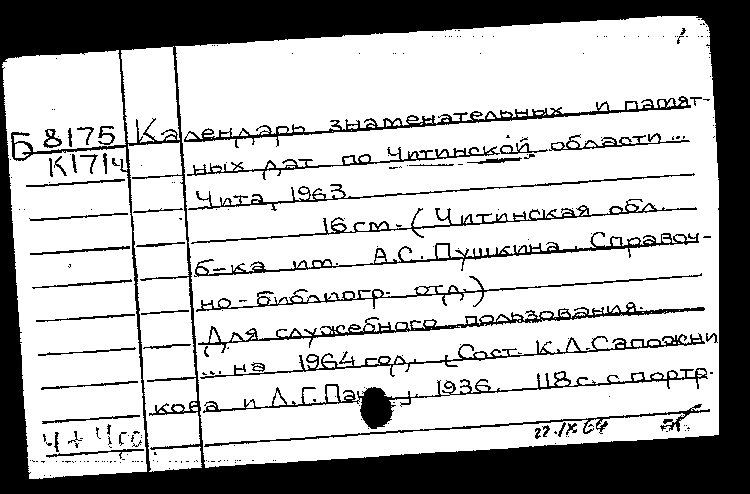 1
Б 8175 Календарь знаменательных и памят-
К171ч ных дат по Читинской области...
Чита, 1963.
16 см. (Читинская обл.
б-ка им. А.С. Пушкина. Справоч-
но-библиогр. отд.)
Для служебного пользования.
... на 1964 год. Сост. К.Л. Сапожни
кова и Л.Г. 1936. 118 с. с портр.
Ч+Ч
22.IX 64